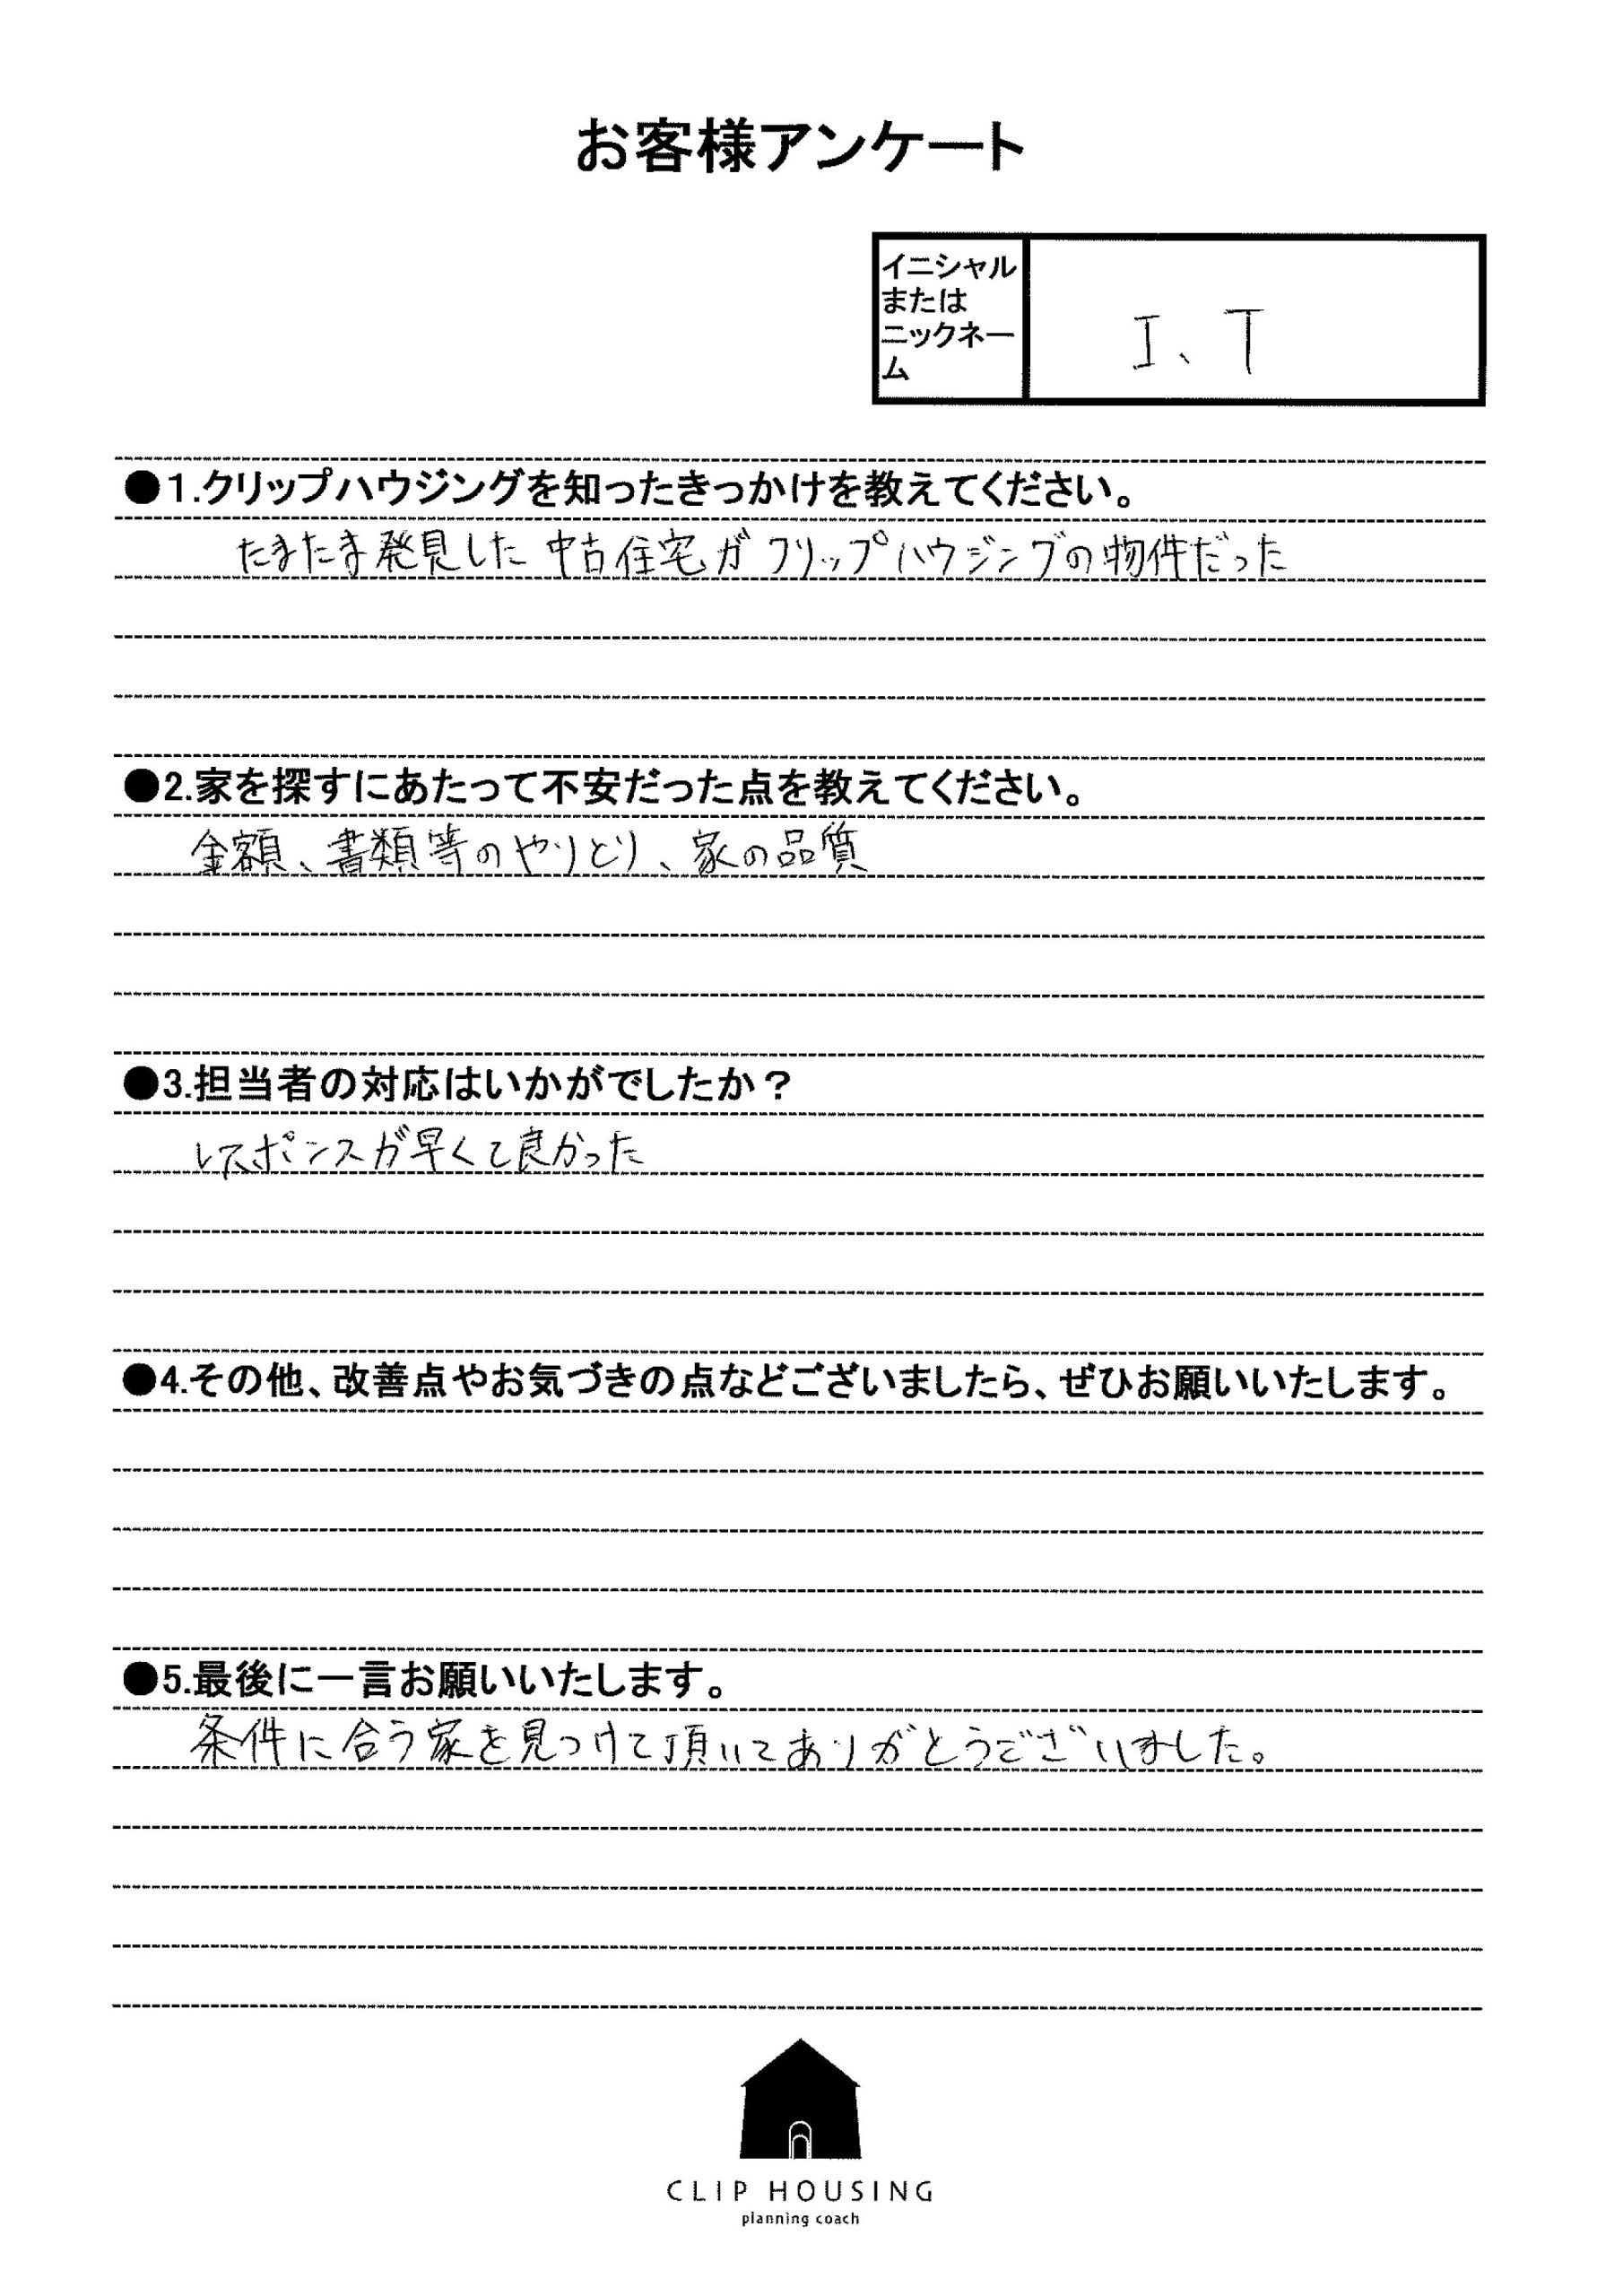 お客様アンケート
イニシャル
または
ニックネー
ム
I、T
●1.クリップハウジングを知ったきっかけを教えてください。
たまたま発見した中古住宅がクリップハウジングの物件だった
●2.家を探すにあたって不安だった点を教えてください。
金額、書類等のやりとり、家の品質
●3.担当者の対応はいかがでしたか？
レスポンスが早くて良かった
●4.その他、改善点やお気づきの点などございましたら、ぜひお願いいたします。
●5.最後に一言お願いいたします。
条件に合う家を見つけて頂いてありがとうございました。
CLIP HOUSING
planning coach